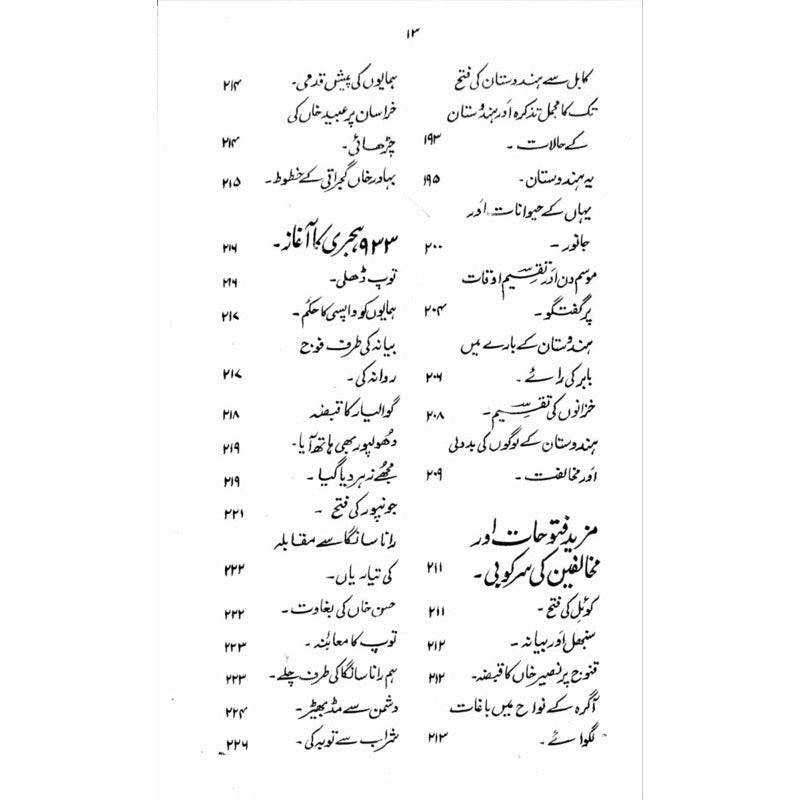 ۱۳
کابل سے ہندوستان کی فتح
تک کا مجمل تذکرہ اور ہندوستان
کے حالات ۔ ۱۹۳
یہ ہندوستان۔ ۱۹۵
یہاں کے حیوانات اور
جانور ۔ ۲۰۰
موسم دن اور تقسیم اوقات
پر گفتگو ۔ ۲۰۴
ہندوستان کے بارے میں
بابر کی رائے ۔ ۲۰۶
خزانوں کی تقسیم۔ ۲۰۸
ہندوستان کے لوگوں کی بددلی
اور مخالفت ۔ ۲۰۹
مزید فتوحات اور
مخالفین کی سرکوبی۔ ۲۱۱
کوئل کی فتح ۔ ۲۱۱
سنبھل اور بیانہ ۔ ۲۱۲
قنوج پر نصیر خاں کا قبضہ۔ ۲۱۲
آگرہ کے نواح میں باغات
لگوائے ۔ ۲۱۳
ہمایوں کی پیش قدمی۔ ۲۱۴
خراسان پر عبید خاں کی
چڑھائی۔ ۲۱۴
بہادر خاں گجراتی کے خطوط ۔ ۲۱۵
۹۳۳ ہجری کا آغاز ۔ ۲۱۶
توپ ڈھلی۔ ۲۱۶
ہمایوں کو واپسی کا حکم ۔ ۲۱۷
بیانہ کی طرف فوج
روانہ کی۔ ۲۱۷
گوالیار کا قبضہ ۲۱۸
دھولپور بھی ہاتھ آیا۔ ۲۱۹
مجھے زہر دیا گیا ۔ ۲۱۹
جونپور کی فتح ۔ ۲۲۱
رانا سانگا سے مقابلہ
کی تیاریاں۔ ۲۲۲
حسن خاں کی بغاوت ۔ ۲۲۲
توپ کا معائنہ ۔ ۲۲۳
ہم رانا سانگا کی طرف چلے۔ ۲۲۳
دشمن سے مڈبھیڑ۔ ۲۲۴
شراب سے توبہ کی۔ ۲۲۶